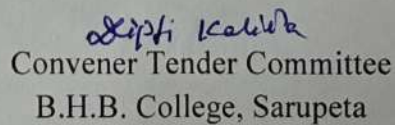 Dipti Kalita
Convener Tender Committee
B.H.B. College, Sarupeta